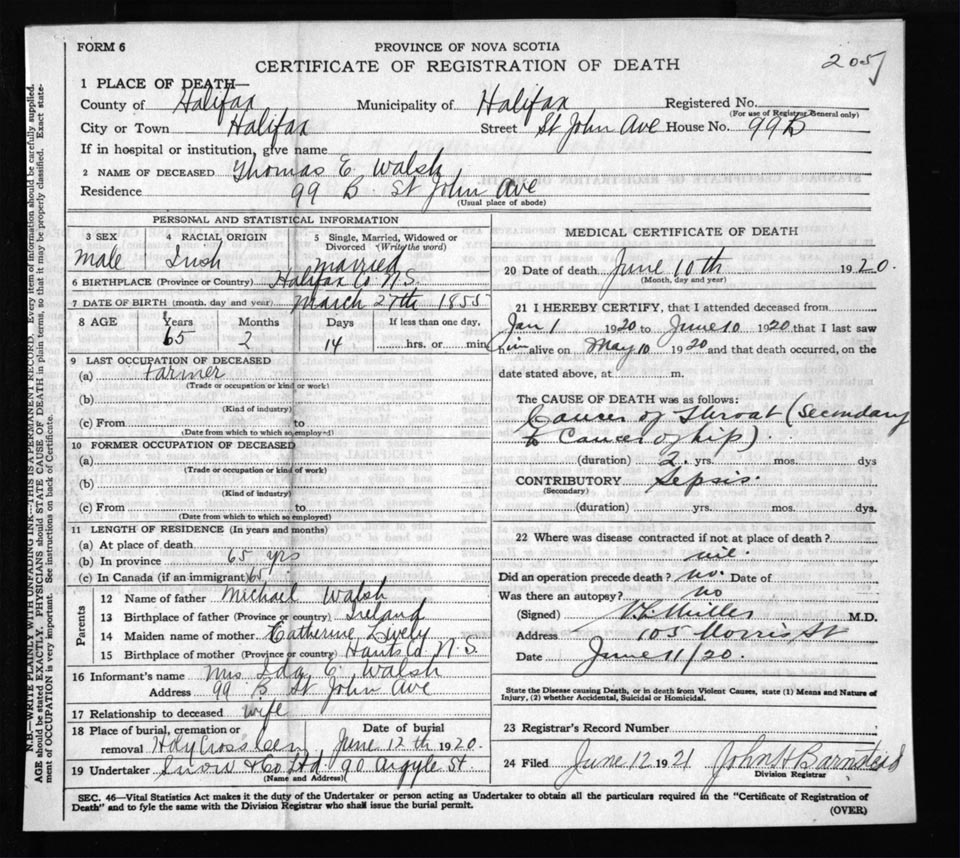 FORM 6
PROVINCE OF NOVA SCOTIA
2057
CERTIFICATE OF REGISTRATION OF DEATH
1 PLACE OF DEATH—
County of Halifax Municipality of Halifax Registered No.
(For use of Registrar General only)
City or Town Halifax Street St John Ave House No. 99B
If in hospital or institution, give name
2 NAME OF DECEASED Thomas E. Walsh
Residence 99 B. St John Ave
(Usual place of abode)
PERSONAL AND STATISTICAL INFORMATION
3 SEX 4 RACIAL ORIGIN 5 Single, Married, Widowed or Divorced (Write the word)
Male Irish Married
6 BIRTHPLACE (Province or Country) Halifax Co N.S.
7 DATE OF BIRTH (month, day and year) March 27th 1855
8 AGE Years Months Days If less than one day,
65 2 14 hrs. or min
9 LAST OCCUPATION OF DECEASED
(a) Farmer
(Trade or occupation or kind or work)
(b)
(Kind of industry)
(c) From to
(Date from which to which so employed)
10 FORMER OCCUPATION OF DECEASED
(a)
(Trade or occupation or kind of work)
(b)
(Kind of industry)
(c) From to
(Date from which to which so employed)
11 LENGTH OF RESIDENCE (In years and months)
(a) At place of death
(b) In province 65 yrs
(c) In Canada (if an immigrant) 65
Parents
12 Name of father Michael Walsh
13 Birthplace of father (Province or country) Ireland
14 Maiden name of mother Catherine Lively
15 Birthplace of mother (Province or country) Hants Co N.S.
16 Informant's name Mrs Ida E. Walsh
Address 99 B St John Ave
17 Relationship to deceased wife
18 Place of burial, cremation or removal Holy Cross Cem Date of burial June 12th 1920.
19 Undertaker Snow & Co Ltd 90 Argyle St.
(Name and Address)
MEDICAL CERTIFICATE OF DEATH
20 Date of death June 10th 1920.
(Month, day and year)
21 I HEREBY CERTIFY, that I attended deceased from
Jan 1 1920 to June 10 1920 that I last saw
him alive on May 10 1920 and that death occurred, on the
date stated above, at m.
The CAUSE OF DEATH was as follows:
Cancer of Throat (Secondary
to Cancer of hip).
(duration) 2 yrs. mos. dys
CONTRIBUTORY Sepsis.
(Secondary)
(duration) yrs. mos. dys.
22 Where was disease contracted if not at place of death?
nil.
Did an operation precede death? no. Date of
Was there an autopsy? no
(Signed) Miller M.D.
Address 105 Morris St
Date June 11/20.
State the Disease causing Death, or in death from Violent Causes, state (1) Means and Nature of
Injury, (2) whether Accidental, Suicidal or Homicidal.
23 Registrar's Record Number
24 Filed June 12 1921 John H Barnstead
Division Registrar
SEC. 46—Vital Statistics Act makes it the duty of the Undertaker or person acting as Undertaker to obtain all the particulars required in the "Certificate of Registration of
Death" and to fyle the same with the Division Registrar who shall issue the burial permit.
(OVER)
N.B.—WRITE PLAINLY WITH UNFADING INK—THIS IS A PERMANENT RECORD. Every item of information should be carefully supplied.
AGE should be stated EXACTLY. PHYSICIANS should STATE CAUSE OF DEATH in plain terms, so that it may be properly classified. Exact statement of OCCUPATION is very important. See instructions on back of Certificate.